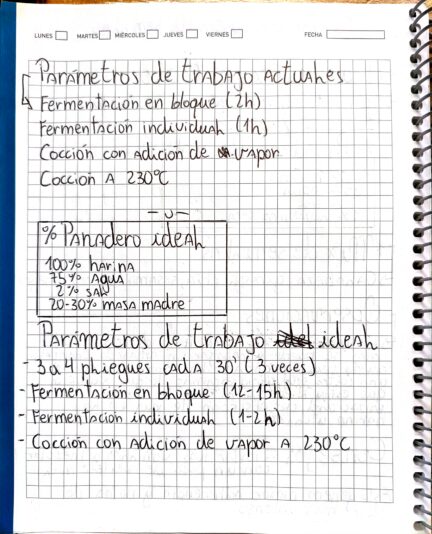 LUNES MARTES MIÉRCOLES JUEVES VIERNES FECHA
Parámetros de trabajo actuales
Fermentación en bloque (2h)
Fermentación individual (1h)
Cocción con adición de vapor
Cocción a 230°C
-U-
% Panadero ideal
100% harina
75% agua
2% sal
20-30% masa madre
Parámetros de trabajo ideal
- 3 a 4 pliegues cada 30' (3 veces)
- Fermentación en bloque (12-15h)
- Fermentación individual (1-2h)
- Cocción con adición de vapor a 230°C